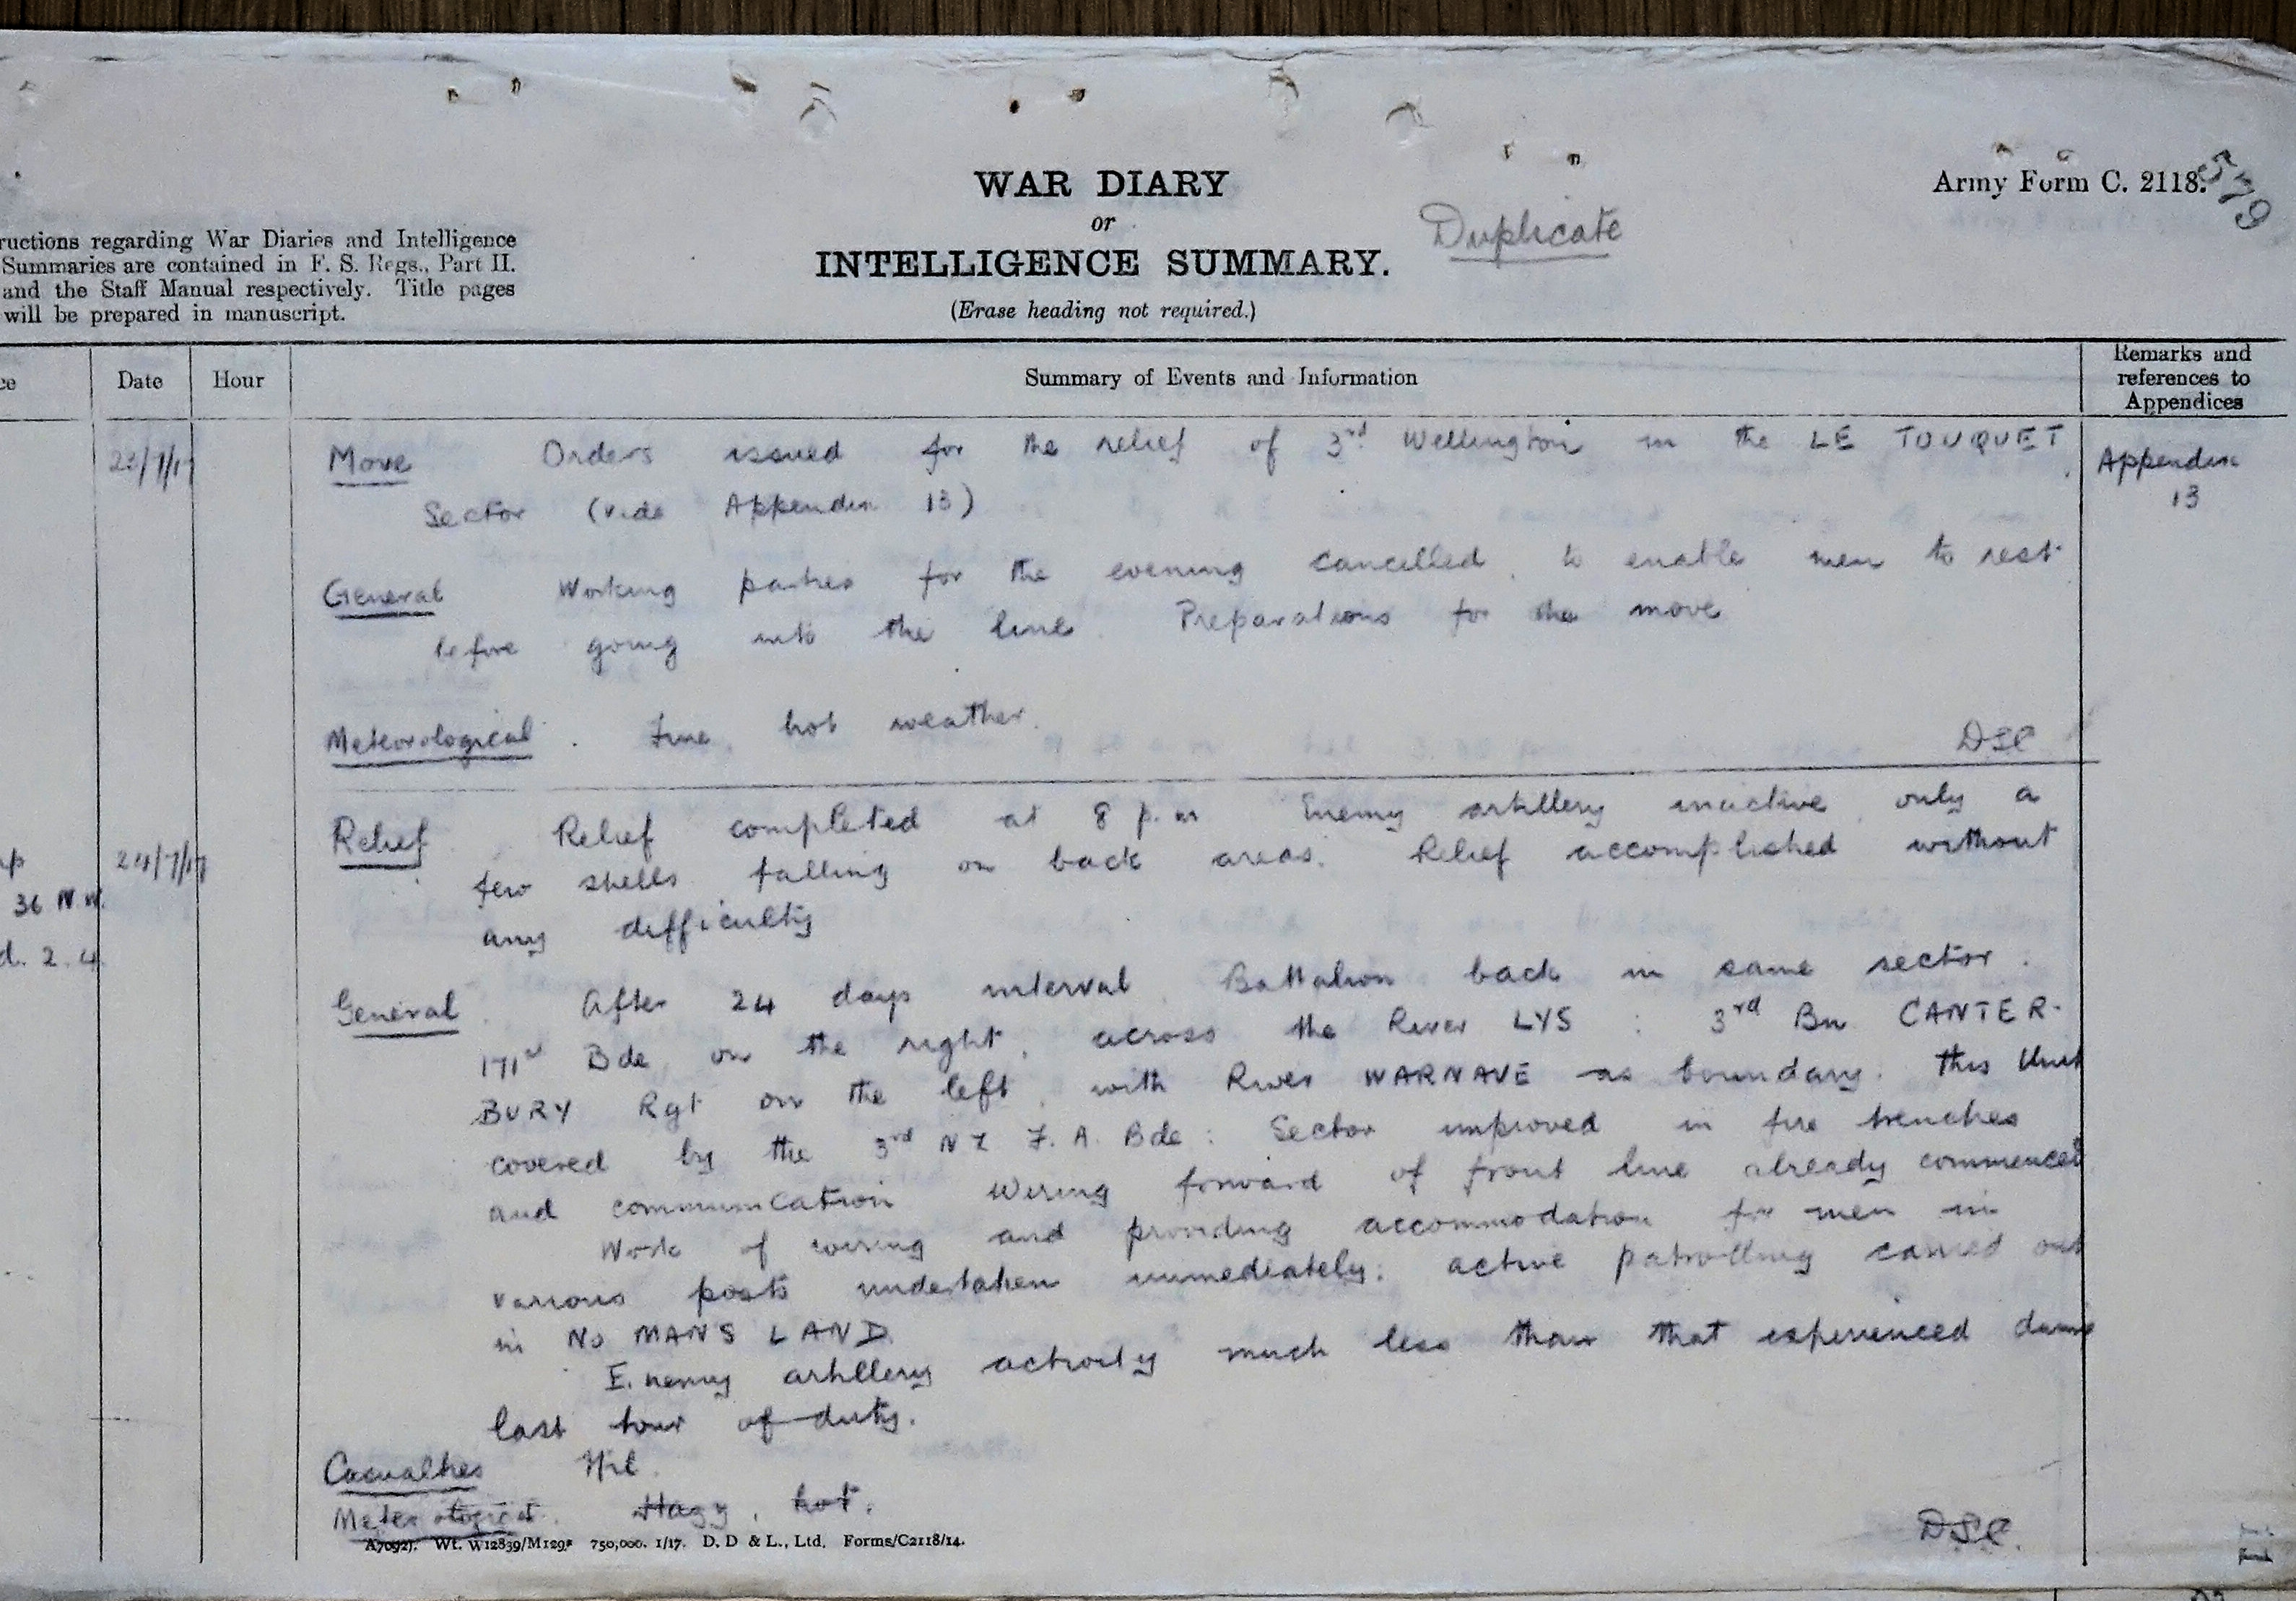 WAR DIARY
or
INTELLIGENCE SUMMARY.
(Erase heading not required.)
Duplicate
Army Form C. 2118.
579
ructions regarding War Diaries and Intelligence
Summaries are contained in F. S. Regs., Part II.
and the Staff Manual respectively. Title pages
will be prepared in manuscript.
ce
Date
Hour
Summary of Events and Information
Remarks and
references to
Appendices
23/7/17
Move Orders issued for the relief of 3rd Wellington in the LE TOUQUET
Sector (vide Appendix 13)
Appendix
13
General Working parties for the evening cancelled, to enable men to rest
before going into the line. Preparations for the move
Meteorological. Fine, hot weather.
DSC
24/7/17
36 N.W.
d. 2. 4
Relief Relief completed at 8 p.m Enemy artillery inactive, only a
few shells falling on back areas. Relief accomplished without
any difficulty
General. After 24 days interval Battalion back in same sector.
171st Bde, on the right, across the River LYS : 3rd Bn CANTER-
BURY Rgt on the left, with River WARNAVE as boundary. This Unit
covered by the 3rd NZ F. A. Bde: Sector improved in fire trenches
and communication Wiring forward of front line already commenced
Work of wiring and providing accommodation for men in
various posts undertaken immediately: active patrolling carried out
in No MANS LAND.
Enemy artillery activity much less than that experienced during
last tour of duty.
Casualties Nil.
Meteorological. Hazy, hot.
DSC.
A7092). Wt. W12839/M1293 750,000. 1/17. D. D & L., Ltd. Forms/C2118/14.